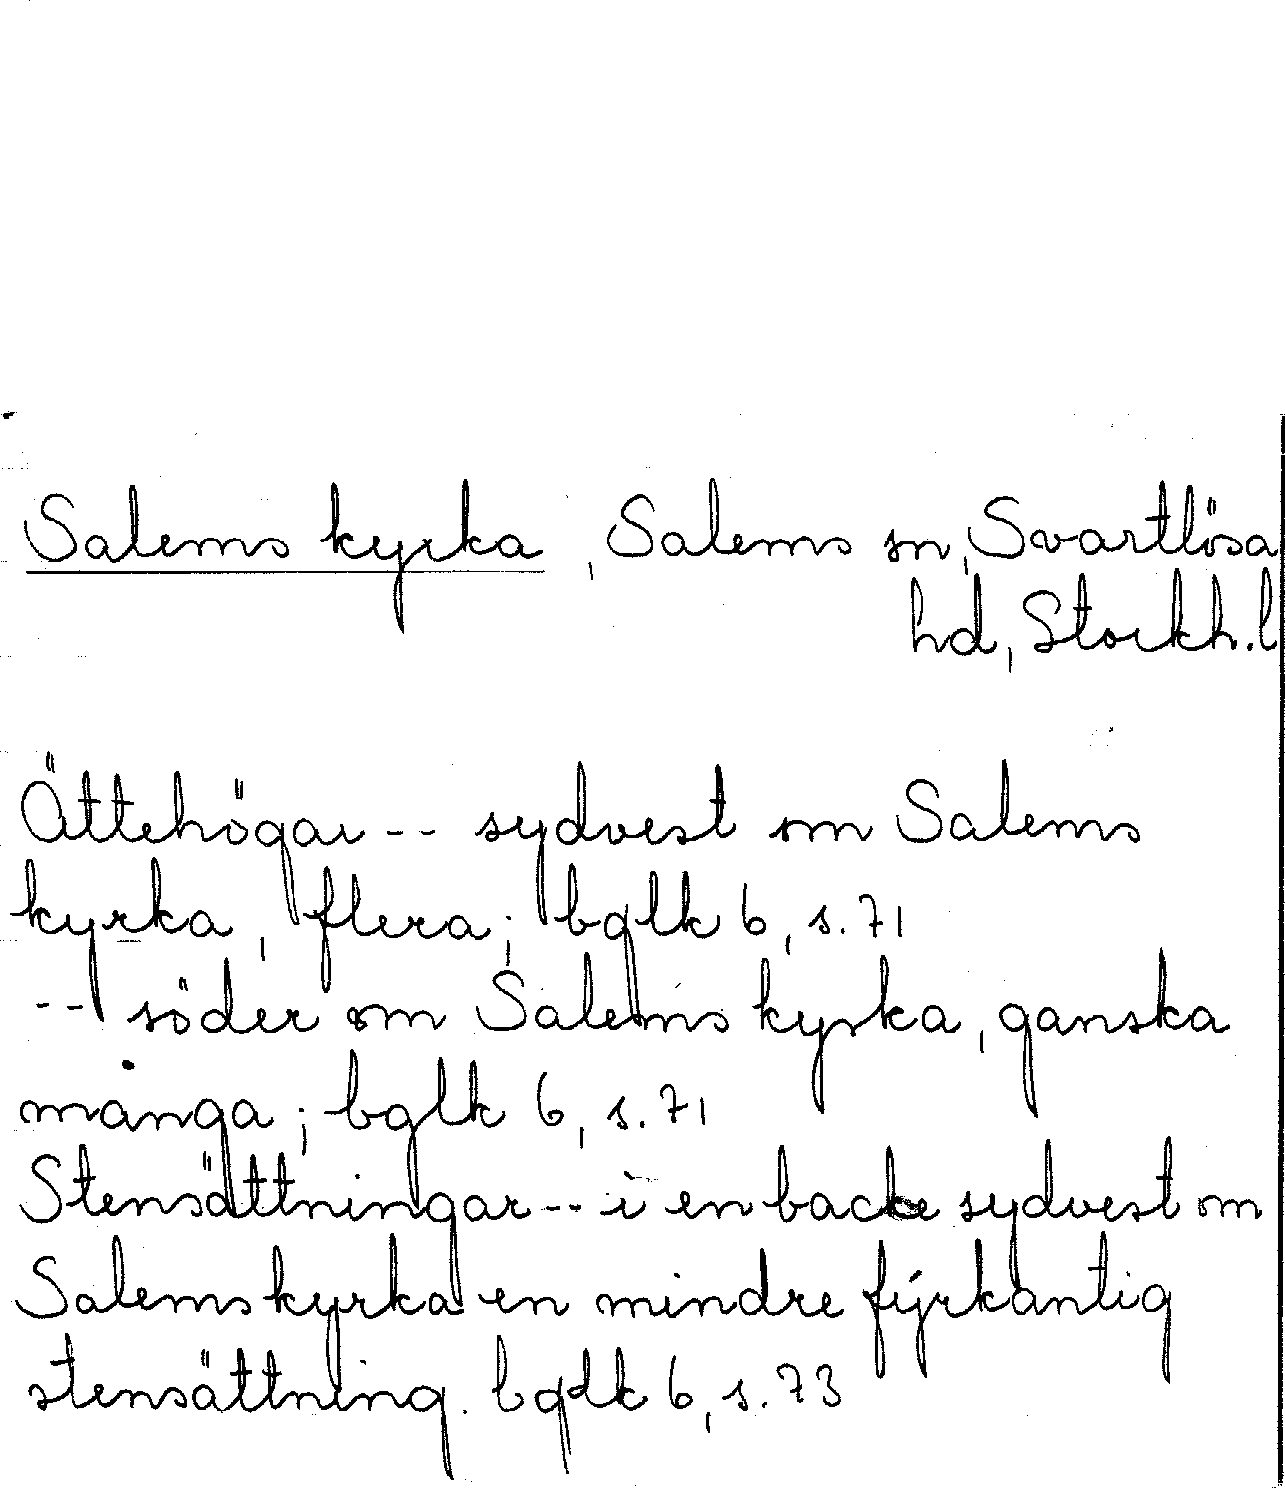 Salems kyrka, Salems sn, Svartlösa
hd, Stockh.l
Ättehögar -- sydvest om Salems
kyrka, flera; bglk 6, s. 71
-- söder om Salems kyrka, ganska
många; bglk 6, s. 71
Stensättningar -- i en backe sydvest om
Salems kyrka en mindre fyrkantig
stensättning. bglk 6, s. 73